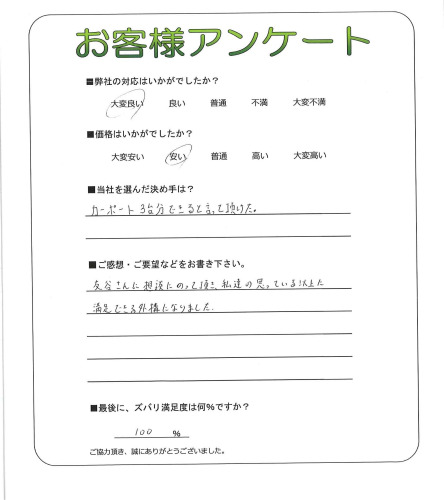 お客様アンケート
■弊社の対応はいかがでしたか?
大変良い 良い 普通 不満 大変不満
■価格はいかがでしたか?
大変安い 安い 普通 高い 大変高い
■当社を選んだ決め手は?
カーポート3台分できると言って頂けた。
■ご感想・ご要望などをお書き下さい。
友谷さんに相談にのって頂き、私達の思っている以上に
満足できる外構になりました。
■最後に、ズバリ満足度は何%ですか?
100 %
ご協力頂き、誠にありがとうございました。